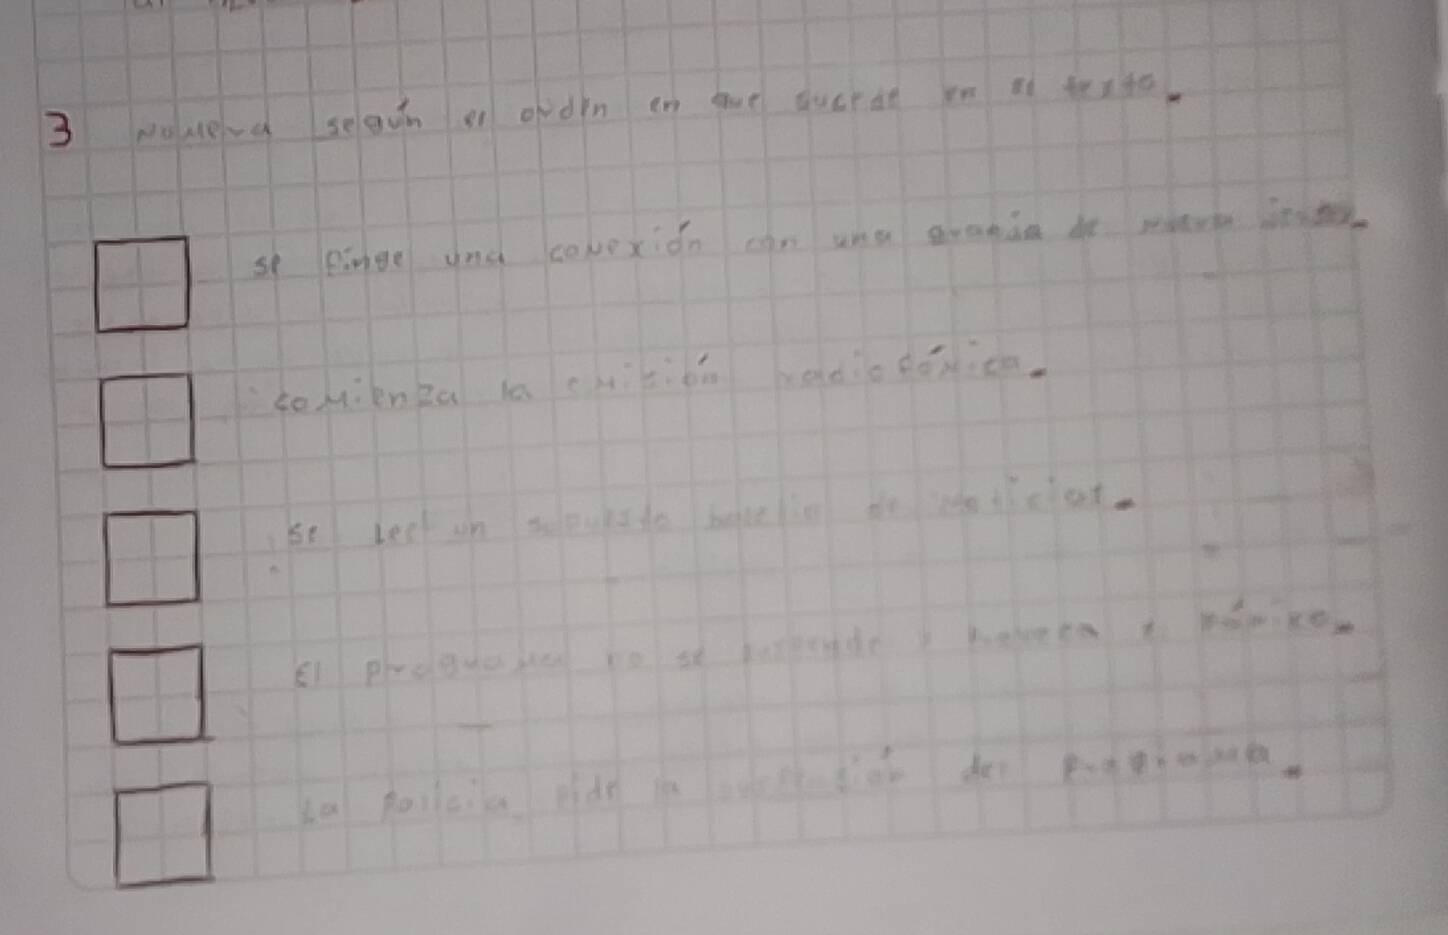 3 Numera según el orden en que sucede en el texto.
se finge una conexión con una granja de
comienza la emisión radiofónica.
se lee un supuesto boletín de noticias.
El programa no se suspende
La policía pide la del programa.